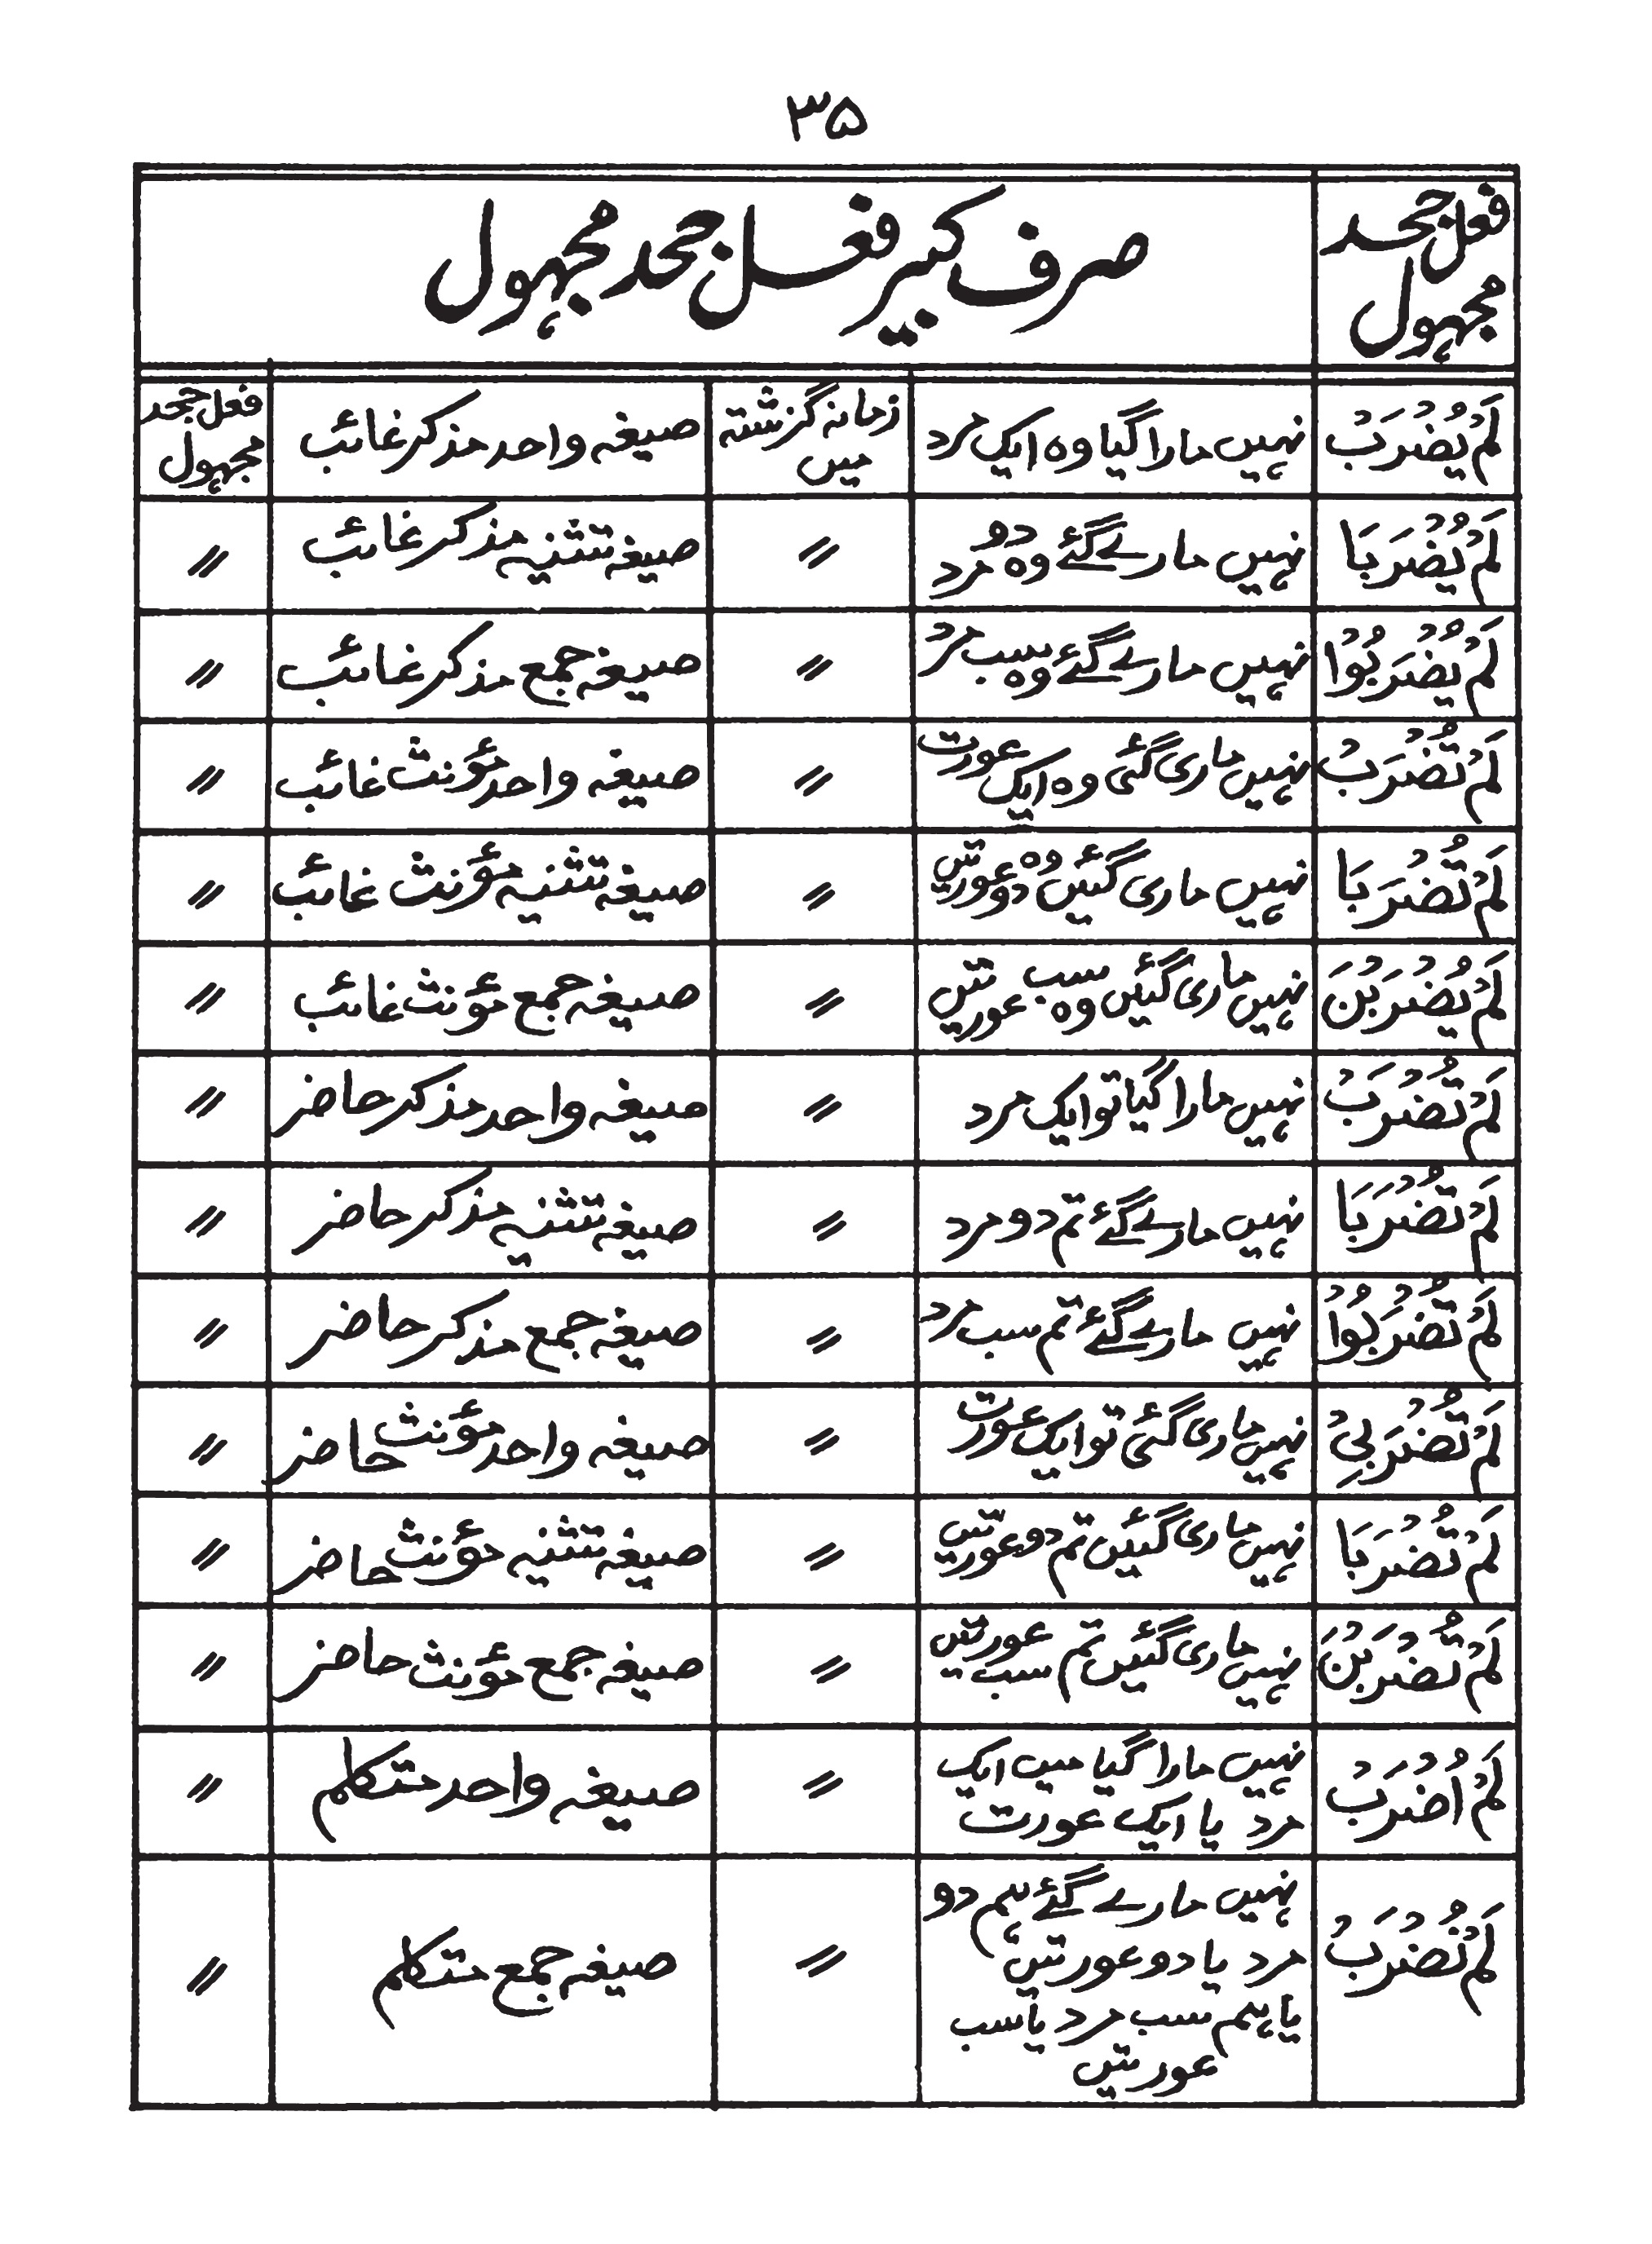 ۳۵
فعل جحد مجہول صرف کبیر فعل جحد مجہول
لَمْ یُضْرَبْ نہیں مارا گیا وہ ایک مرد زمانہ گزشتہ میں صیغہ واحد مذکر غائب فعل جحد مجہول
لَمْ یُضْرَبَا نہیں مارے گئے وہ دو مرد 〃 صیغہ تثنیہ مذکر غائب 〃
لَمْ یُضْرَبُوْا نہیں مارے گئے وہ سب مرد 〃 صیغہ جمع مذکر غائب 〃
لَمْ تُضْرَبْ نہیں ماری گئی وہ ایک عورت 〃 صیغہ واحد مؤنث غائب 〃
لَمْ تُضْرَبَا نہیں ماری گئیں وہ دو عورتیں 〃 صیغہ تثنیہ مؤنث غائب 〃
لَمْ یُضْرَبْنَ نہیں ماری گئیں وہ سب عورتیں 〃 صیغہ جمع مؤنث غائب 〃
لَمْ تُضْرَبْ نہیں مارا گیا تو ایک مرد 〃 صیغہ واحد مذکر حاضر 〃
لَمْ تُضْرَبَا نہیں مارے گئے تم دو مرد 〃 صیغہ تثنیہ مذکر حاضر 〃
لَمْ تُضْرَبُوْا نہیں مارے گئے تم سب مرد 〃 صیغہ جمع مذکر حاضر 〃
لَمْ تُضْرَبِیْ نہیں ماری گئی تو ایک عورت 〃 صیغہ واحد مؤنث حاضر 〃
لَمْ تُضْرَبَا نہیں ماری گئیں تم دو عورتیں 〃 صیغہ تثنیہ مؤنث حاضر 〃
لَمْ تُضْرَبْنَ نہیں ماری گئیں تم سب عورتیں 〃 صیغہ جمع مؤنث حاضر 〃
لَمْ اُضْرَبْ نہیں مارا گیا میں ایک
مرد یا ایک عورت 〃 صیغہ واحد متکلم 〃
لَمْ نُضْرَبْ نہیں مارے گئے ہم دو
مرد یا دو عورتیں
یا ہم سب مرد یا سب
عورتیں 〃 صیغہ جمع متکلم 〃